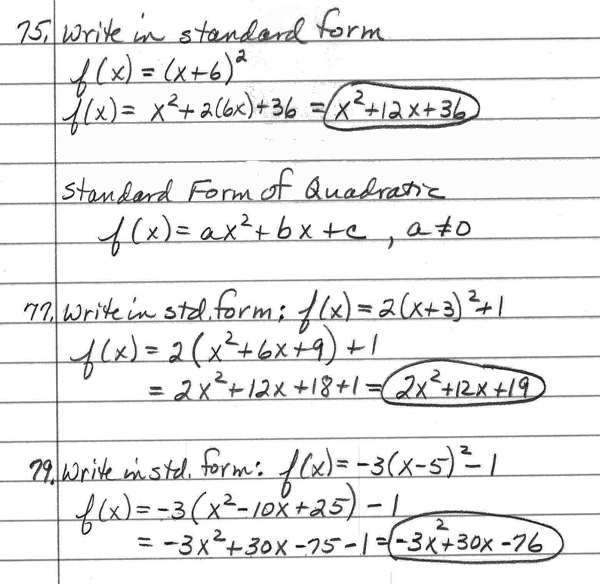 75. Write in standard form
f(x) = (x+6)²
f(x) = x² + 2(6x) + 36 = x² + 12x + 36
Standard Form of Quadratic
f(x) = ax² + bx + c , a ≠ 0
77. Write in std. form: f(x) = 2(x+3)² + 1
f(x) = 2(x² + 6x + 9) + 1
= 2x² + 12x + 18 + 1 = 2x² + 12x + 19
79. Write in std. form: f(x) = -3(x-5)² - 1
f(x) = -3(x² - 10x + 25) - 1
= -3x² + 30x - 75 - 1 = -3x² + 30x - 76